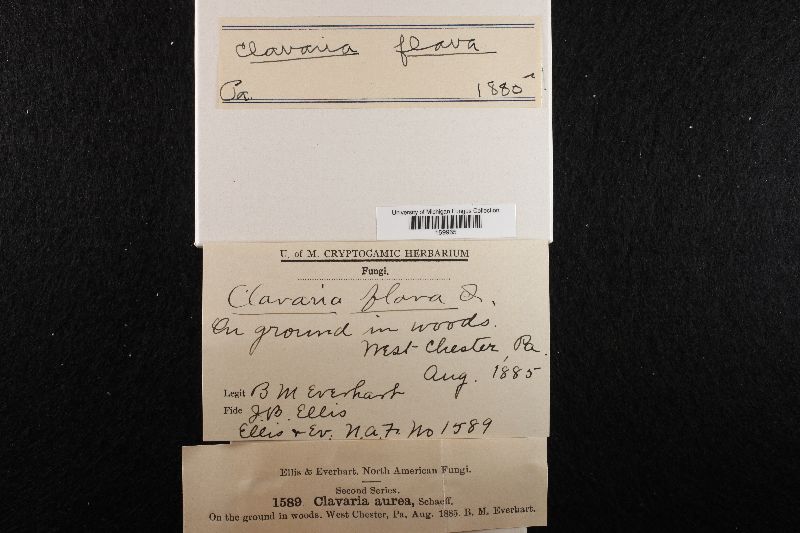 Clavaria flava
Pa. 1885
University of Michigan Fungus Collection
U. of M. CRYPTOGAMIC HERBARIUM
Fungi.
Clavaria flava
On ground in woods.
West Chester, Pa.
Aug. 1885
Legit B M Everhart
Fide J.B. Ellis
Ellis & Ev. N.A.F. No 1589
Ellis & Everhart, North American Fungi.
Second Series.
1589 Clavaria aurea, Schaeff,
On the ground in woods. West Chester, Pa, Aug. 1885. B. M. Everhart.